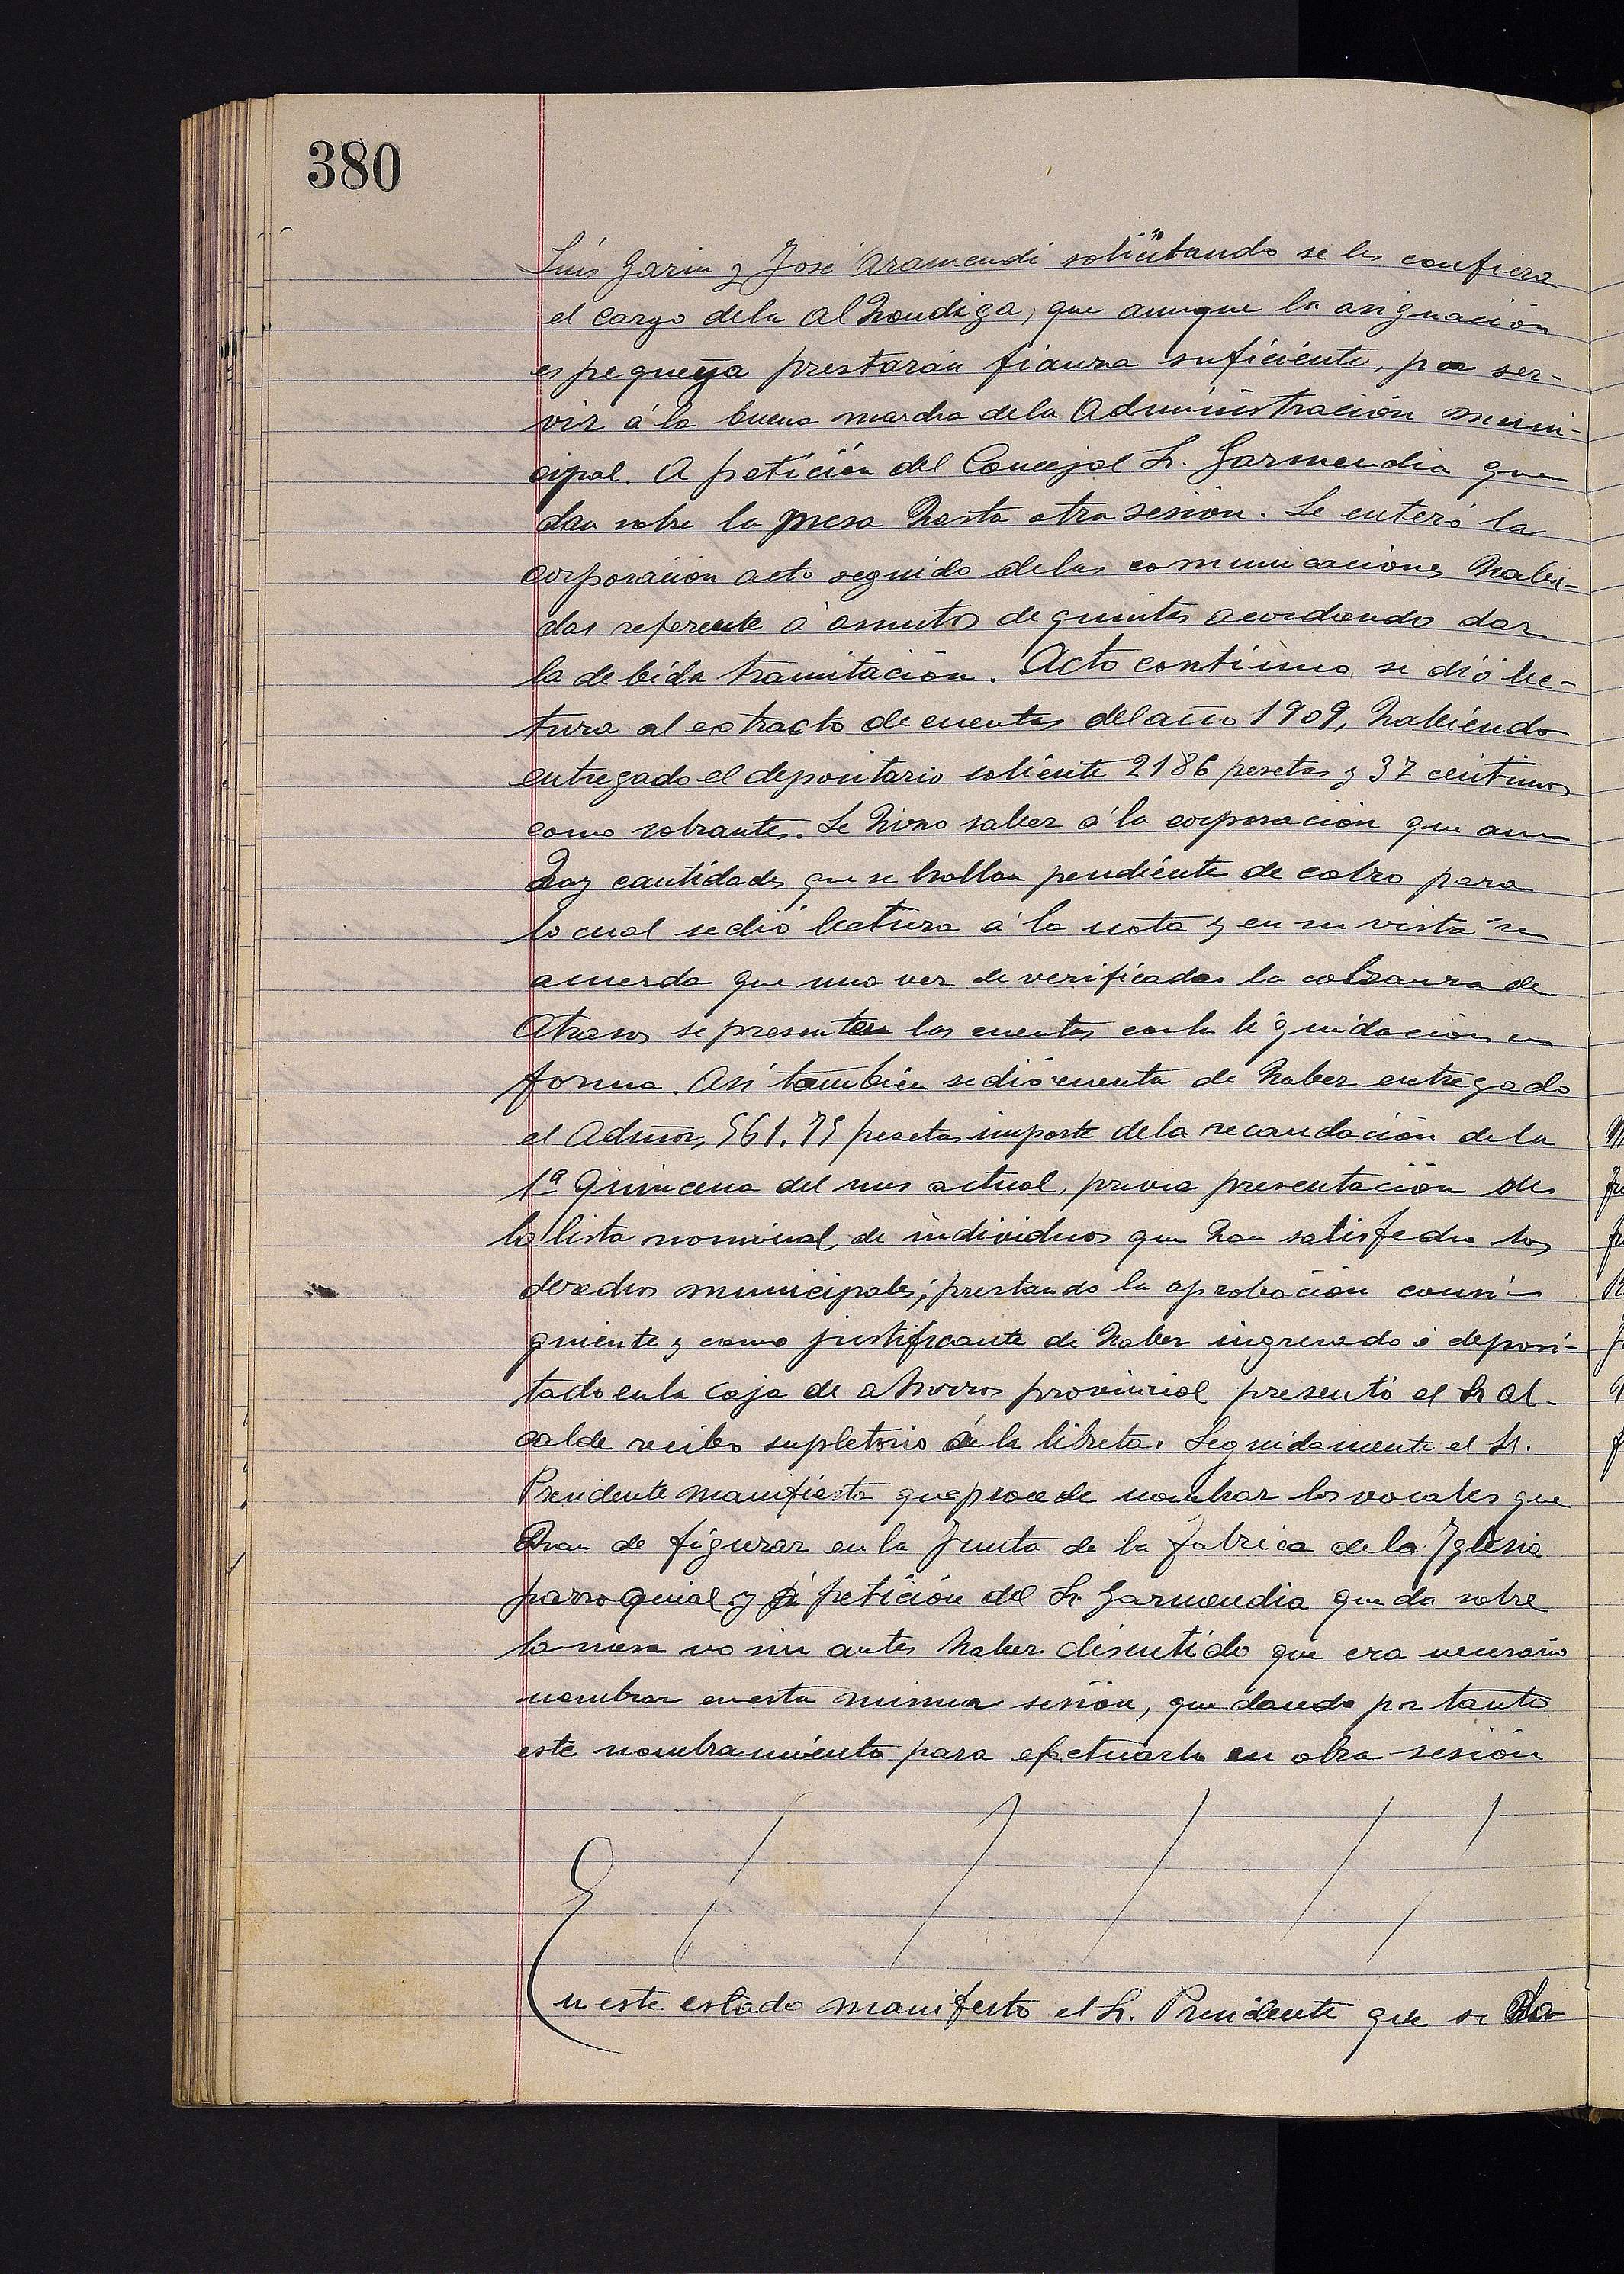 380
Luis Garin y José Aramendi solicitando se les confiera
el cargo dela Alhondiga, que aunque la asignación
es pequeya prestarán fianza suficiente, por ser-
vir á la buena marcha dela Administración muni-
cipal. A petición del Concejal Sr. Garmendia que
dan sobre la mesa hasta otra sesión. Se enteró la
corporación acto seguido delas comunicaciones habi-
das referente á asuntos de quintas acordando dar
la debida tramitación. Acto continuo se dió lec-
tura al extracto de cuentas del año 1909, habiendo
entregado el depositario saliente 2186 pesetas y 37 centimos
como sobrantes. Se hizo saber á la corporación que aun
hay cantidades que se hallan pendiente de cobro para
lo cual se dió lectura á la nota y en su vista se
acuerda que una vez de verificadas la cobranza de
Atrasos se presenten las cuentas con la liquidación en
forma. Así también se dió cuenta de haber entregado
el Admor, 561,75 pesetas importe dela recaudación de la
1ª Quincena del mes actual, previa presentación de
la lista nominal de individuos que han satisfecho los
derechos municipales; prestando la aprobación consi-
guiente y como justificante de haber ingresado ó deposi-
tado en la Caja de ahorros provincial presentó el Sr Al-
calde recibo supletorio á la libreta. Seguidamente el Sr.
Presidente manifiesta que procede nombrar los vocales que
han de figurar en la Junta de la fabrica de la Iglesia
parroquial y á petición del Sr Garmendia queda sobre
la mesa no sin antes haber discutido que era necesario
nombrar en esta misma sesión, quedando por tanto
este nombramiento para efectuarlo en otra sesión
En este estado manifesto el Sr. Presidente que se ha